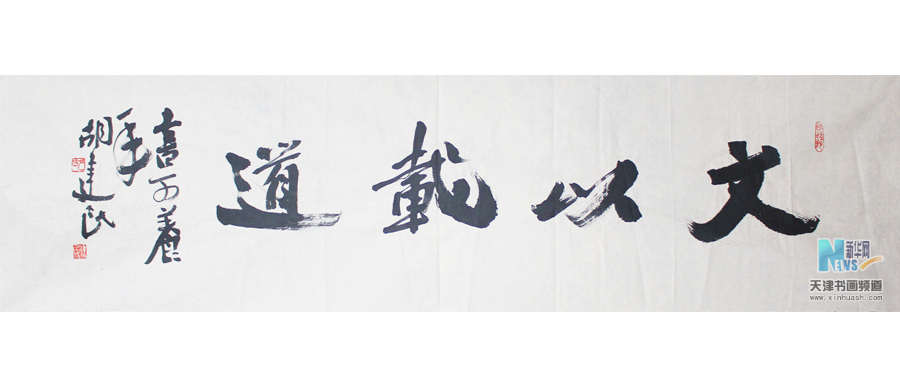 文以載道
書可養
年
胡建民
新华网
NEWS
天津书画频道
www.xinhuash.com